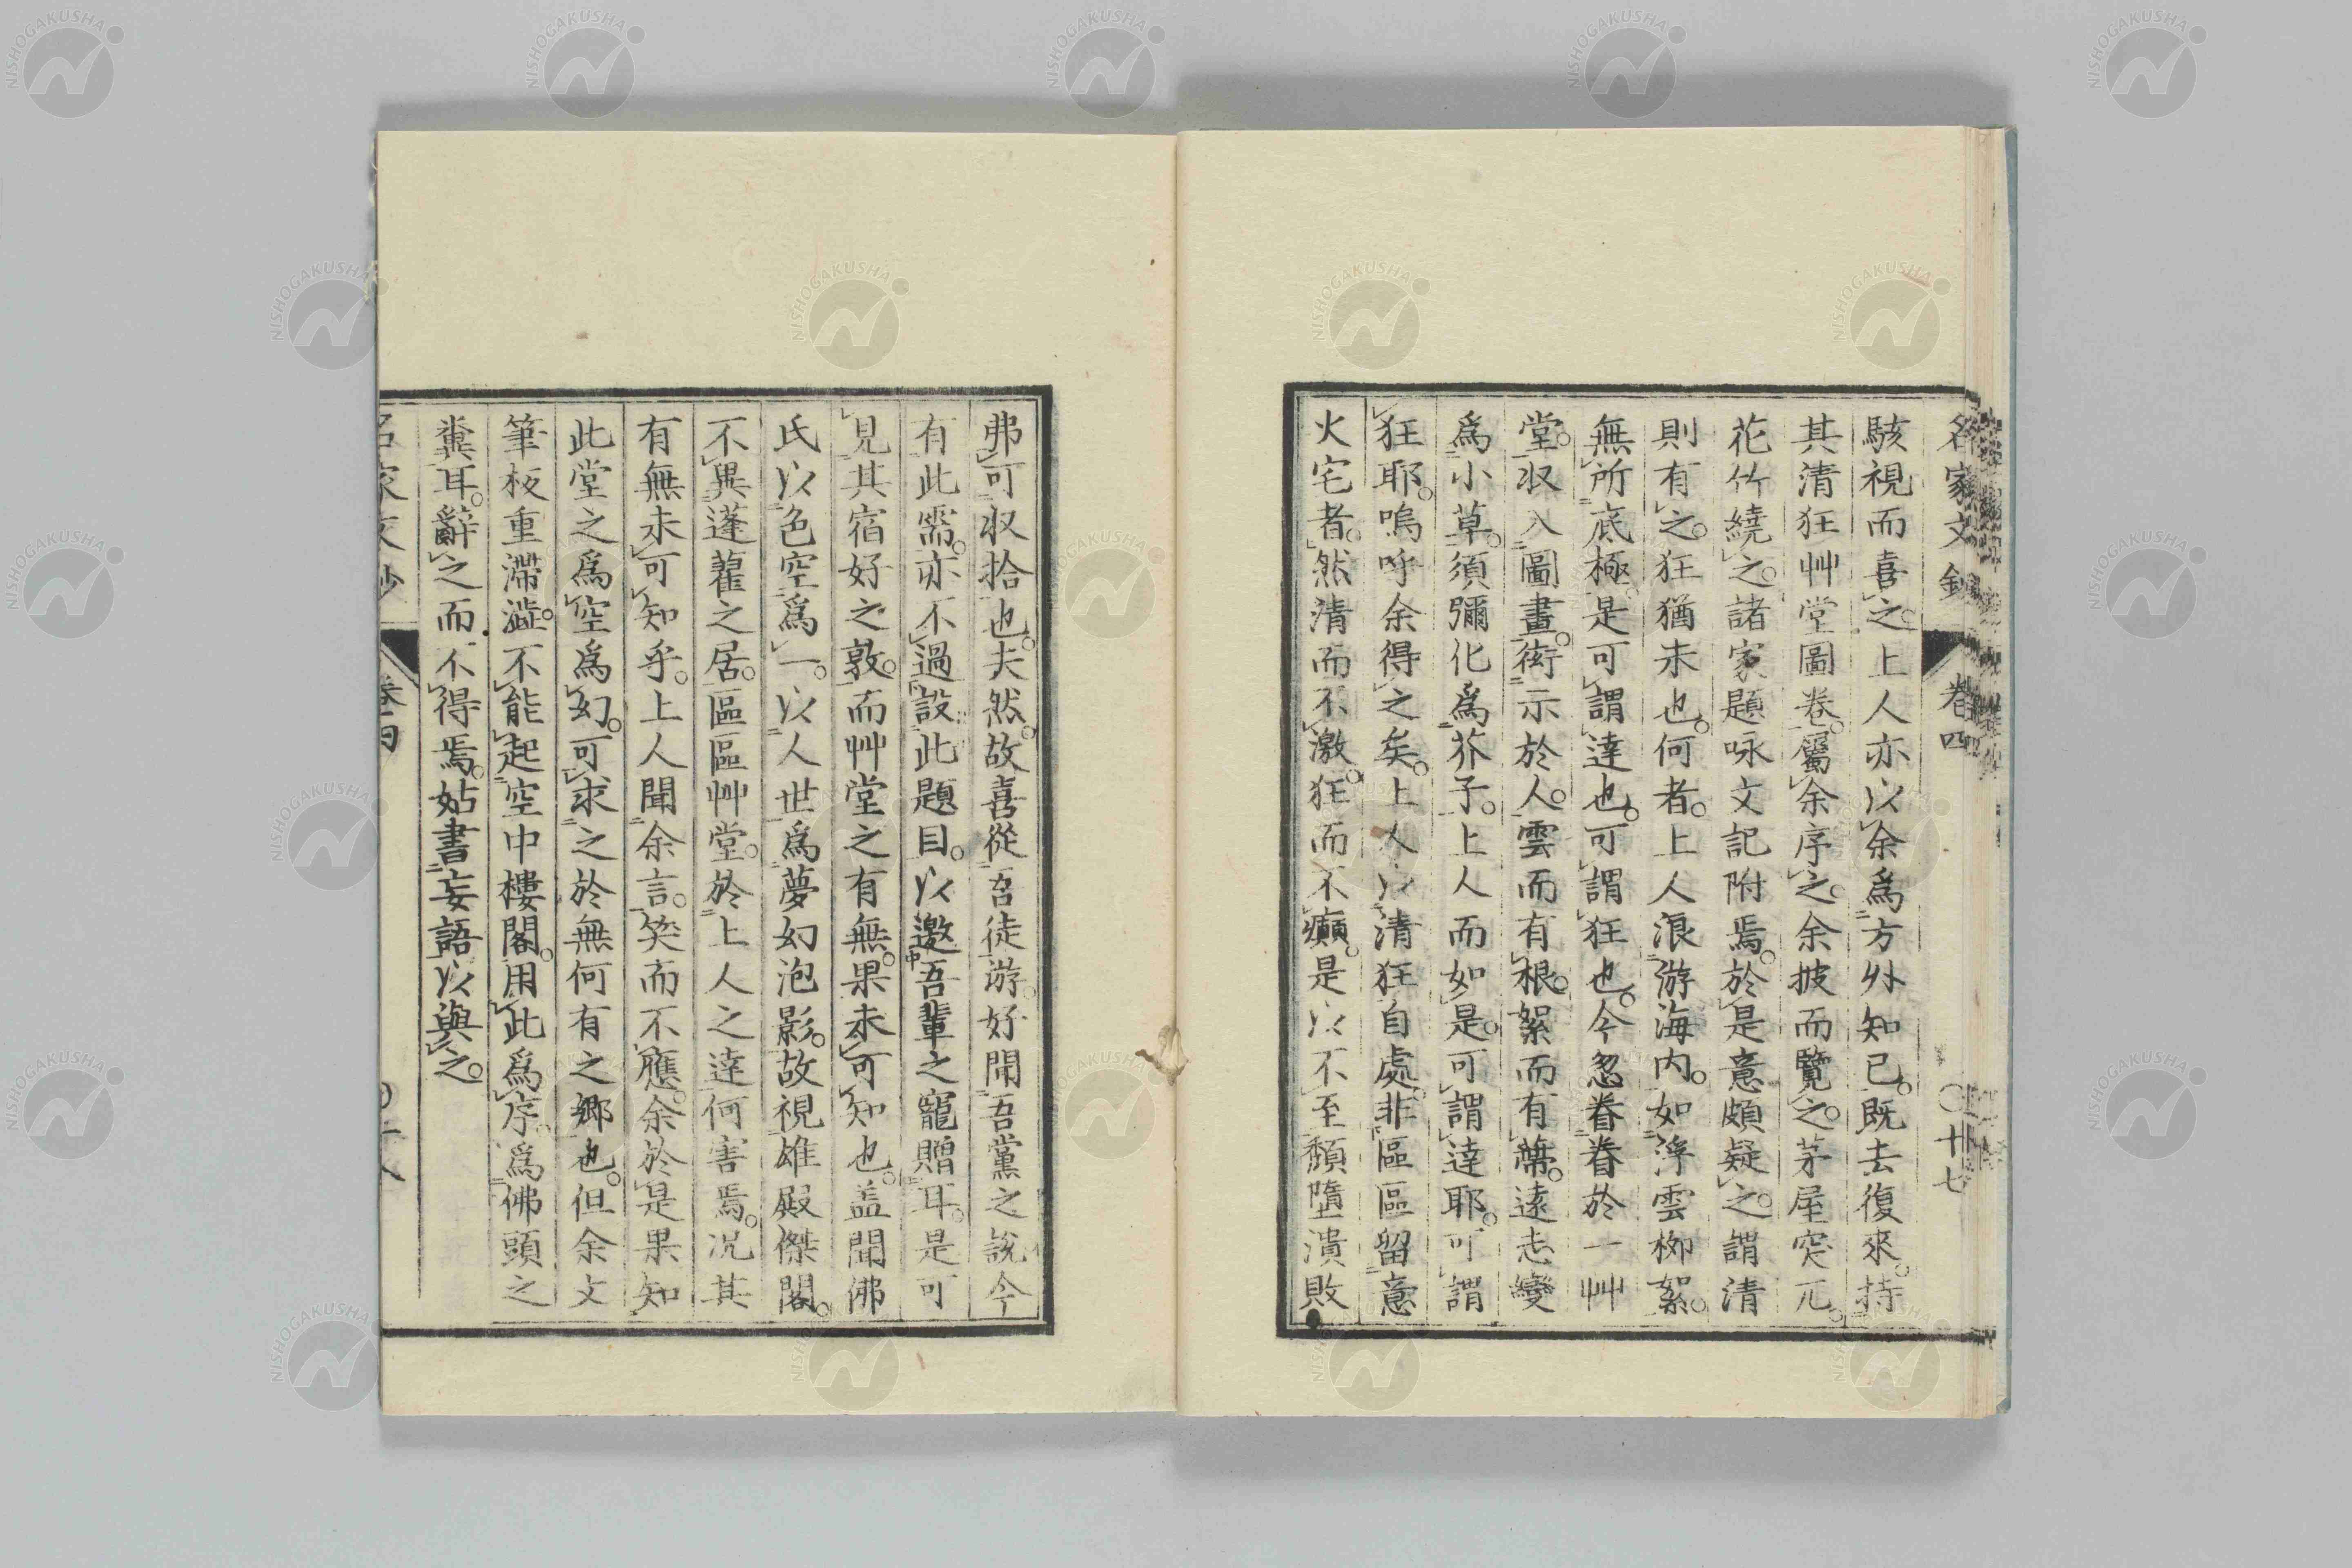 名家文鈔 卷四 〇廿七
駭視而喜之。上人亦以余爲方外知已。既去復來。持
其清狂艸堂圖卷。屬余序之。余披而覽之。茅屋突兀。
花竹繞之。諸家題咏文記附焉。於是意頗疑之。謂清
則有之。狂猶未也。何者。上人浪游海内。如浮雲栁絮。
無所底極。是可謂達也。可謂狂也。今忽眷眷於一艸
堂。収入圖畫。衒示於人。雲而有根。絮而有蔕。遠志變
爲小草。須彌化爲芥子。上人而如是。可謂達耶。可謂
狂耶。嗚呼余得之矣。上人以清狂自處。非區區留意
火宅者。然清而不激。狂而不癲。是以不至頽墮潰敗
弗可収拾也。夫然。故喜從吾徒游。好聞吾黨之說。今
有此需。亦不過設此題目。以邀吾輩之寵贈耳。是可
見其宿好之敦。而艸堂之有無。果未可知也。盖聞佛
氏以色空爲一。以人世爲夢幻泡影。故視雄殿傑閣。
不異蓬藋之居。區區艸堂。於上人之達何害焉。况其
有無未可知乎。上人聞余言。笑而不應。余於是果知
此堂之爲空爲幻。可求之於無何有之郷也。但余文
筆板重滯澁。不能起空中樓閣。用此爲序。爲佛頭之
糞耳。辭之而不得焉。姑書妄語以與之。
NISHOGAKUSHA